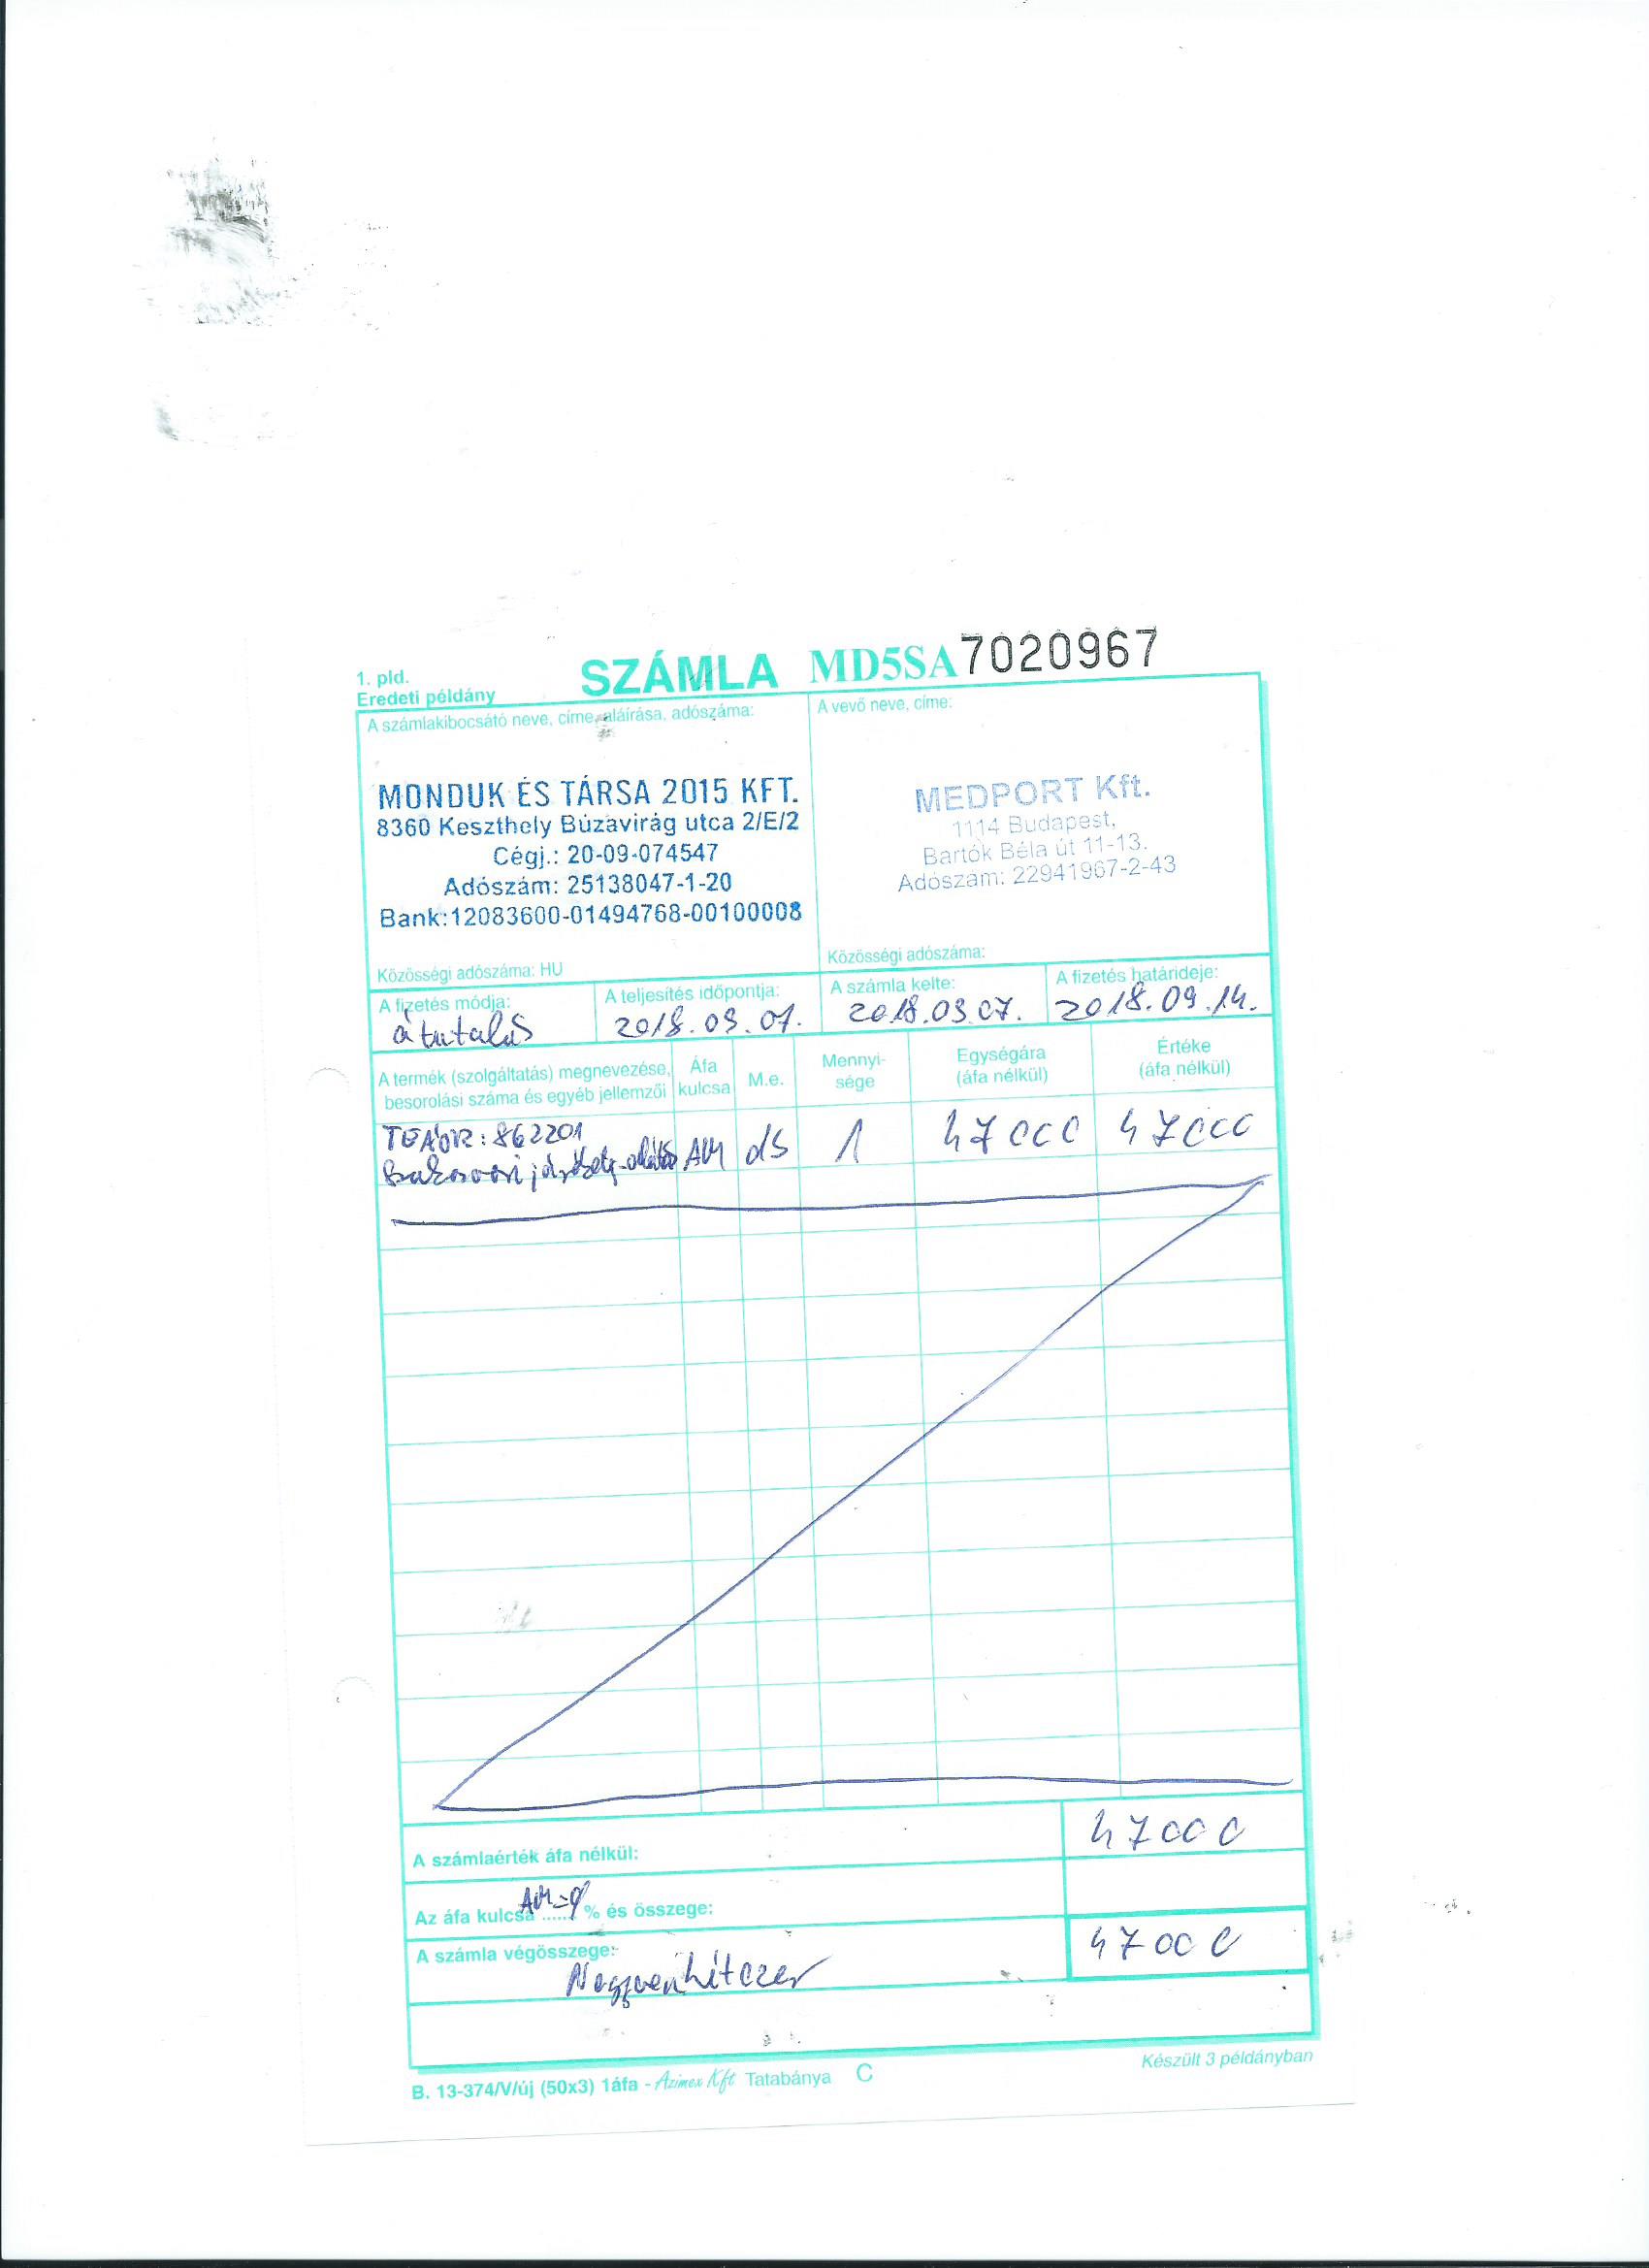 SZÁMLA MD5SA 7020967
1. pld.
Eredeti példány
A számlakibocsátó neve, címe, aláírása, adószáma:
MONDUK ÉS TÁRSA 2015 KFT.
8360 Keszthely Búzavirág utca 2/E/2
Cégj.: 20-09-074547
Adószám: 25138047-1-20
Bank:12083600-01494768-00100008
Közösségi adószáma: HU
A vevő neve, címe:
MEDPORT Kft.
1114 Budapest,
Bartók Béla út 11-13.
Adószám: 22941967-2-43
Közösségi adószáma:
A fizetés módja:
átutalás
A teljesítés időpontja:
2018.09.07.
A számla kelte:
2018.09.07.
A fizetés határideje:
2018.09.14.
A termék (szolgáltatás) megnevezése, besorolási száma és egyéb jellemzői
Áfa kulcsa
M.e.
Mennyi-sége
Egységára (áfa nélkül)
Értéke (áfa nélkül)
TEÁOR: 862201
Szakorvosi járóbeteg-ellátás AM db 1 47000 47000
A számlaérték áfa nélkül: 47000
Az áfa kulcsa AM=0 % és összege:
A számla végösszege: 47000
Negyvenhétezer
B. 13-374/V/új (50x3) 1áfa - Azimex Kft Tatabánya C
Készült 3 példányban